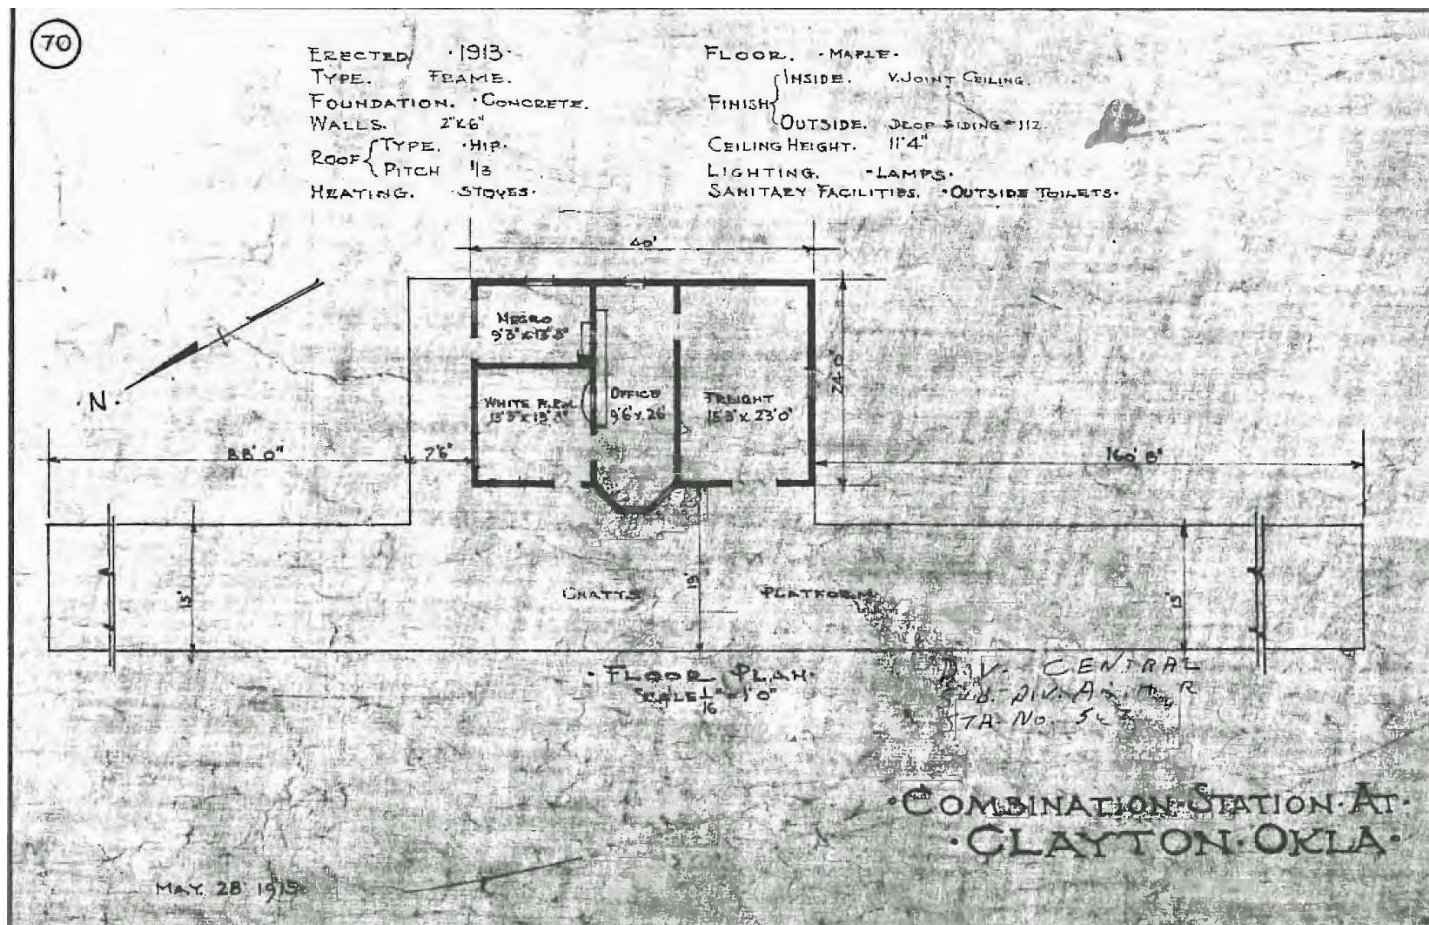 70
ERECTED · 1913 ·
TYPE. FRAME.
FOUNDATION. · CONCRETE.
WALLS. 2"X6"
ROOF { TYPE. · HIP.
PITCH 1/3
HEATING. · STOVES ·
FLOOR. · MAPLE ·
FINISH { INSIDE. V.JOINT CEILING.
OUTSIDE. DROP SIDING #112.
CEILING HEIGHT. 11'4"
LIGHTING. · LAMPS ·
SANITARY FACILITIES. · OUTSIDE TOILETS ·
40'
NEGRO
9'3" x 13'8"
24'0"
· N ·
WHITE R.RM.
13'3" x 13'8"
OFFICE
9'6" x 26'
FREIGHT
15'3" x 23'0"
88' 0"
7'6"
160' 8"
15'
CHATTS
19'
PLATFORM
15'
· FLOOR PLAN ·
SCALE 1/16" = 1'0"
DIV. CENTRAL
SUB. DIV.
STA. No.
· COMBINATION · STATION · AT ·
· CLAYTON · OKLA ·
MAY 28 1915